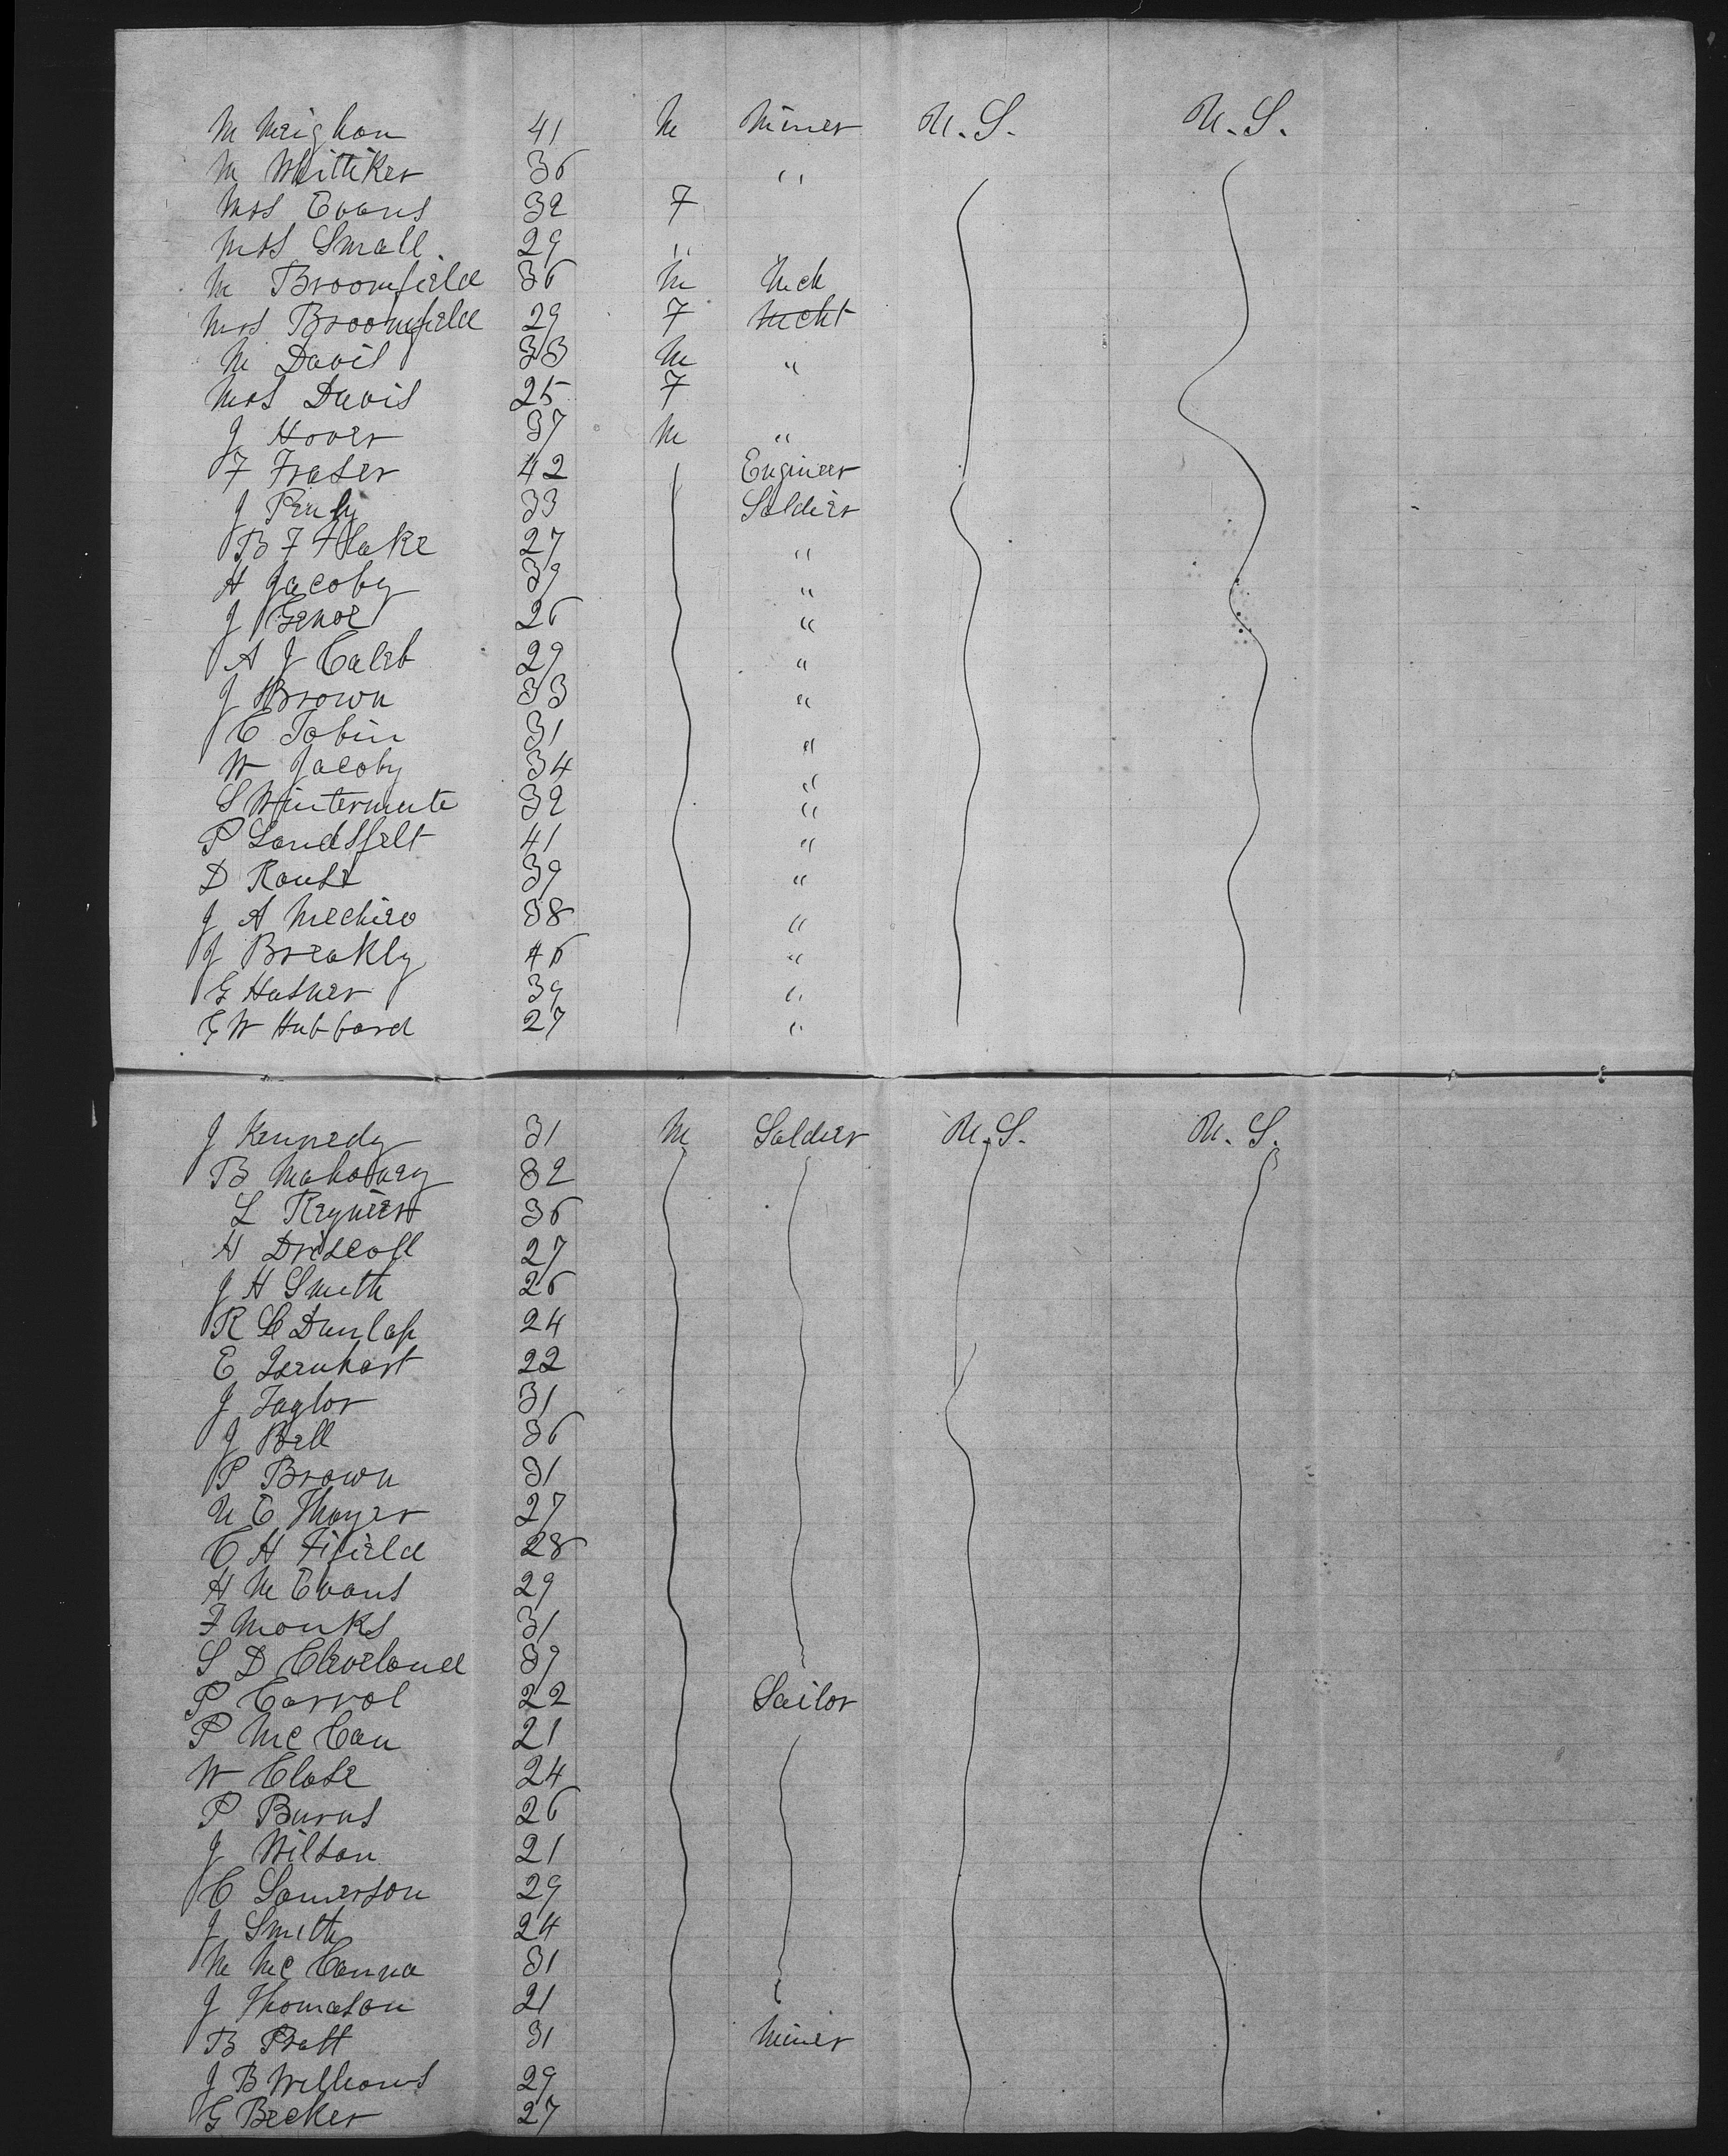 M Meighan 41 M Miner U.S. U.S.
M Whittiker 36 "
Mrs Evans 32 F
Mrs Small 29 "
M Broomfield 36 M Mch
Mrs Broomfield 29 F Mcht
M Davis 33 M "
Mrs Davis 25 F
J Hover 37 M "
F Fraser 42 Engineer
J 33 Soldier
B F Flake 27 "
H Jacoby 39 "
J Genoe 26 "
A J Caleb 29 "
J Brown 33 "
C Tobin 31 "
W Jacoby 34 "
S Wintermute 32 "
P Landsfelt 41 "
D Rouse 39 "
J A 38 "
J Breakly 46 "
G Hasner 39 "
G W Hubbard 27 "
J Kennedy 31 M Soldier U.S. U.S.
B Mahoney 32
L 36
H Driscoll 27
J H Smith 26
R Dunlap 24
E 22
J Taylor 31
J Bell 36
P Brown 31
N C Thayer 27
C H Fifield 28
H M Evans 29
F Monks 31
S D Cleveland 39
P Carrol 22 Sailor
P McCan 21
W Close 24
P Burns 26
J Wilson 21
C Samerson 29
J Smith 24
M McCanna 31
J Thomason 21
B Pratt 31 Miner
J B Williams 29
G Becker 27